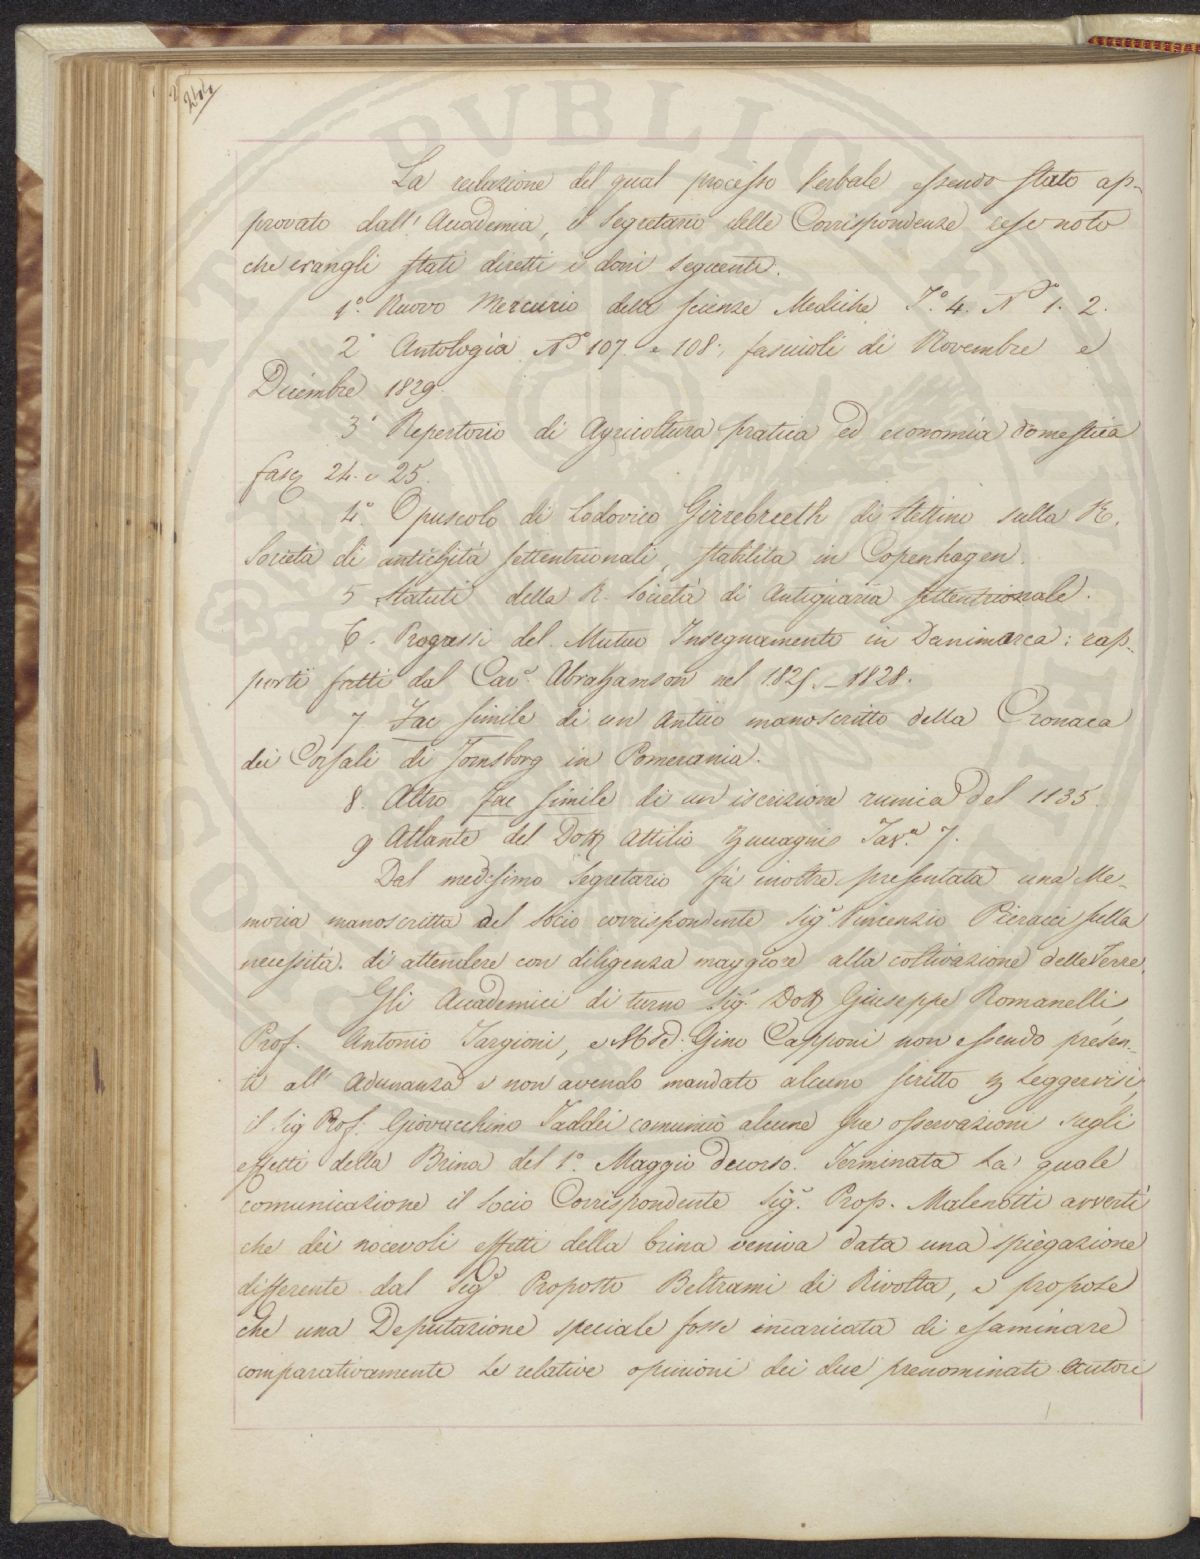 244
La redazione del qual processo Verbale essendo stato ap-
provato dall' Accademia, il Segretario delle Corrispondenze rese noto
che erangli stati diretti i doni seguenti.
1°. Nuovo Mercurio delle scienze Mediche T.° 4. N.° 1. 2.
2° Antologia N° 107. e 108; fascicoli di Novembre e
Dicembre 1829.
3° Repertorio di Agricoltura pratica ed economia domestica
fasc 24. e 25.
4°. Opuscolo di Lodovico Girrebreeth di Stettino sulla R.
Società di antichità settentrionali, stabilita in Copenhagen.
5 Statuti della R. Società di Antiquaria settentrionale.
6. Progressi del Mutuo Insegnamento in Danimarca: rap-
porti fatti dal Cav.e Abrahamson nel 182 – 1828.
7 Fac simile di un Antico manoscritto della Cronaca
dei Corsali di Jomsborg in Pomerania.
8. Altro fac simile di un iscrizione runica del 1135.
9 Atlante del Dott Attilio Zuccagni Tav.a 7.
Dal medesimo Segretario fù inoltre presentata una Me-
moria manoscritta del Socio corrispondente Sig.r Vincenzio Pieracci sulla
necessità di attendere con diligenza maggiore alla coltivazione delle Terre.
Gli Accademici di turno Sig.i Dott Giuseppe Romanelli,
Prof. Antonio Targioni, e M Gino Capponi non essendo presen-
ti all' Adunanza e non avendo mandato alcuno scritto p leggervisi,
il Sig Prof. Giovacchino Taddei comunicò alcune sue osservazioni sugli
effetti della Brina del 1°. Maggio decorso. Terminata La quale
comunicazione il Socio Corrispondente Sig.r Prop. Malenotti avvertì
che dei nocevoli effetti della brina veniva data una spiegazione
differente dal Sig.r Proposto Beltrami di Rivolta, e propose
che una Deputazione speciale fosse incaricata di esaminare
comparativamente Le relative opinioni dei due prenominati autori
PUBLIC